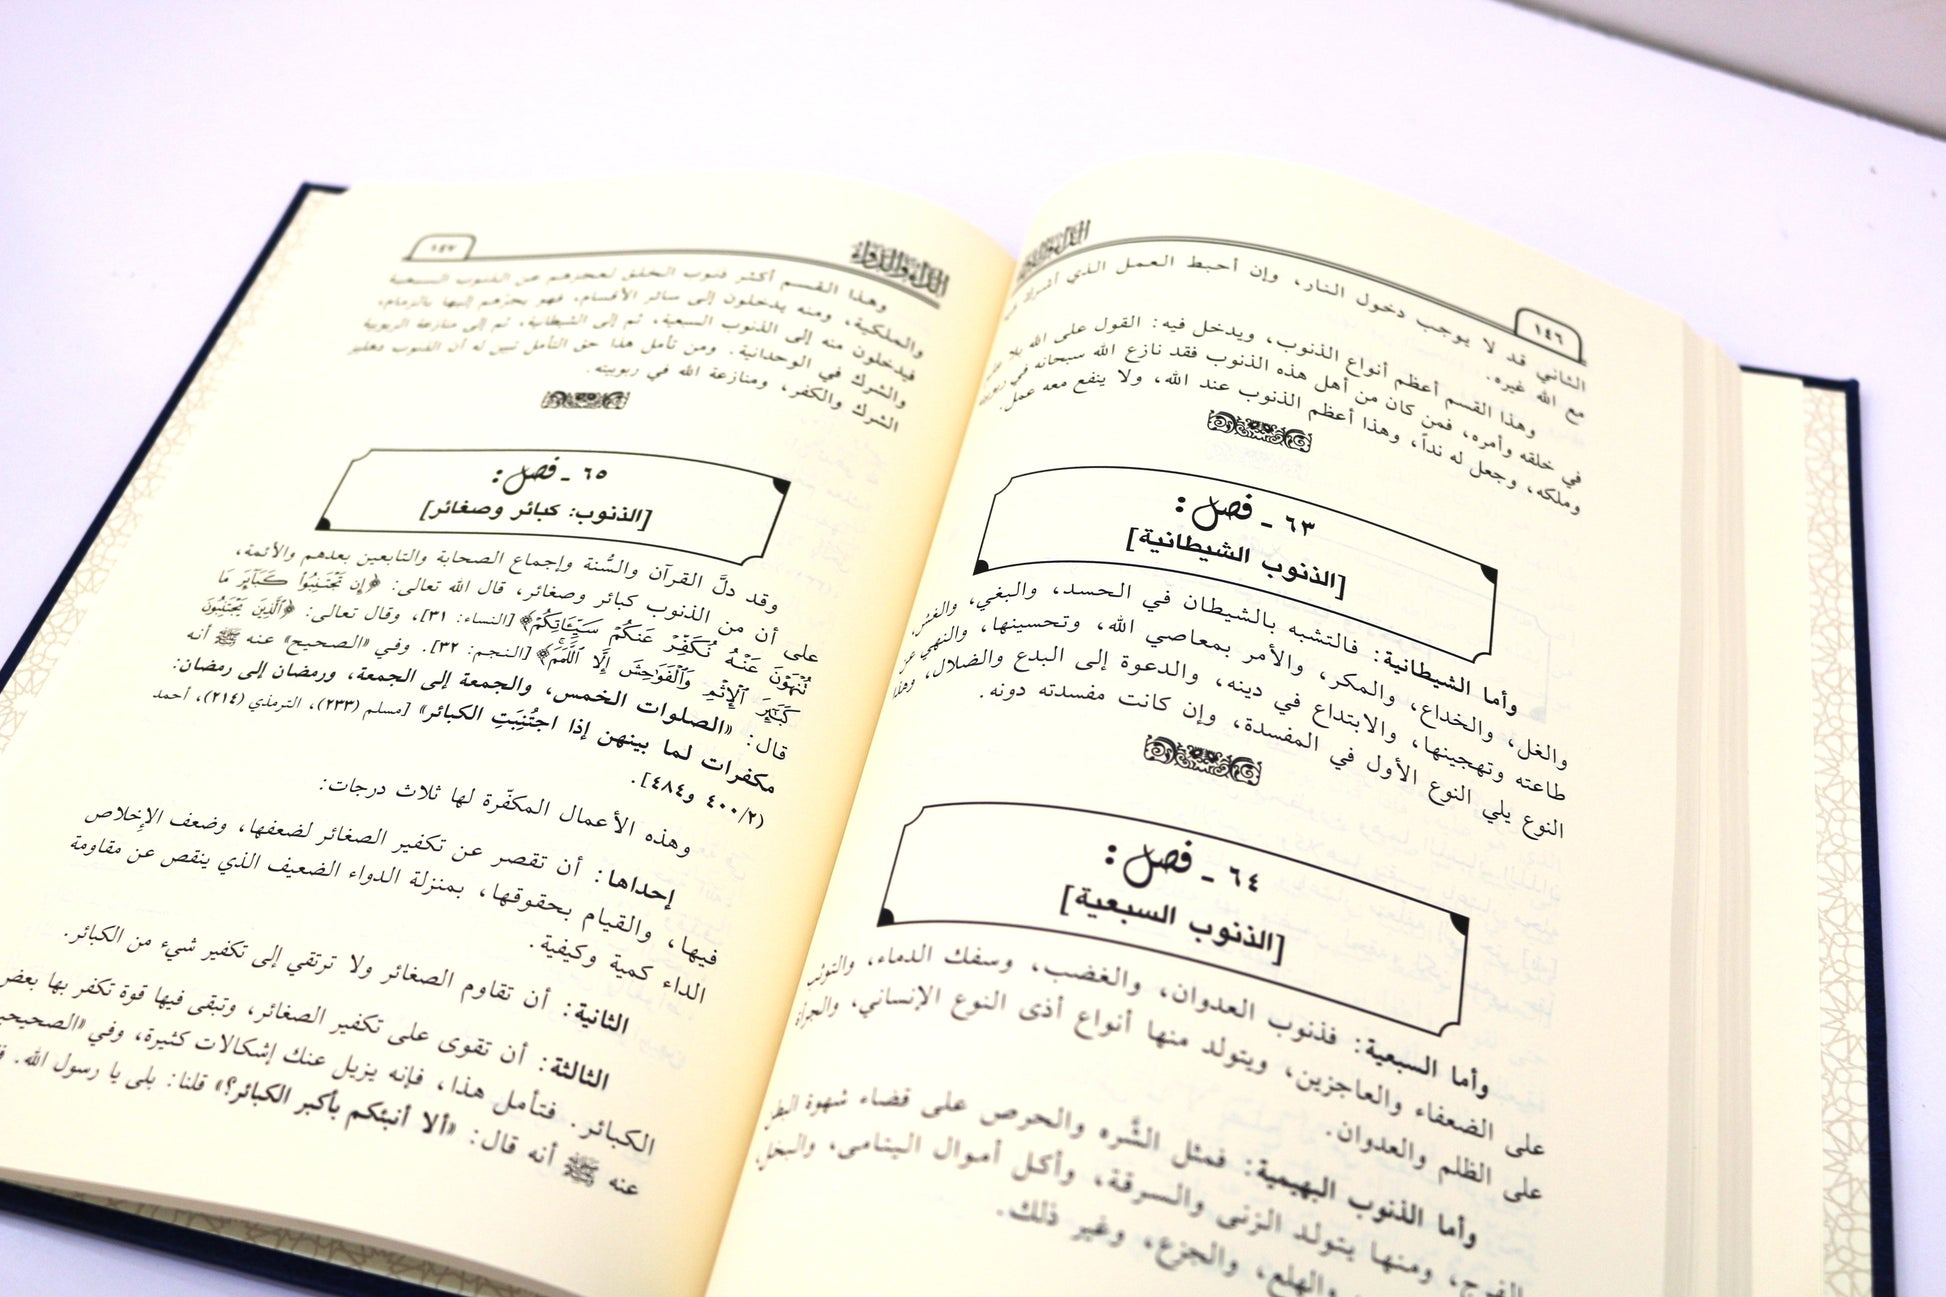 ١٤٦
الداء والدواء
الثاني قد لا يوجب دخول النار، وإن أحبط العمل الذي أشرك فيه
مع الله غيره.
وهذا القسم أعظم أنواع الذنوب، ويدخل فيه: القول على الله بلا علم
في خلقه وأمره، فمن كان من أهل هذه الذنوب فقد نازع الله سبحانه في ربوبيته
وملكه، وجعل له نداً، وهذا أعظم الذنوب عند الله، ولا ينفع معه عمل.
٦٣ ـ فصل:
[الذنوب الشيطانية]
وأما الشيطانية: فالتشبه بالشيطان في الحسد، والبغي، والغش،
والغل، والخداع، والمكر، والأمر بمعاصي الله، وتحسينها، والنهي عن
طاعته وتهجينها، والابتداع في دينه، والدعوة إلى البدع والضلال، وهذا
النوع يلي النوع الأول في المفسدة، وإن كانت مفسدته دونه.
٦٤ ـ فصل:
[الذنوب السبعية]
وأما السبعية: فذنوب العدوان، والغضب، وسفك الدماء، والتوثب
على الضعفاء والعاجزين، ويتولد منها أنواع أذى النوع الإنساني، والجرأة
على الظلم والعدوان.
وأما الذنوب البهيمية: فمثل الشَّره والحرص على قضاء شهوة البطن
الفرج، ومنها يتولد الزنى والسرقة، وأكل أموال اليتامى، والبخل،
والهلع، والجزع، وغير ذلك.
١٤٧
الداء والدواء
وهذا القسم أكثر ذنوب الخلق لعجزهم عن الذنوب السبعية
والملكية، ومنه يدخلون إلى سائر الأقسام، فهو يجرّهم إليها بالزمام،
فيدخلون منه إلى الذنوب السبعية، ثم إلى الشيطانية، ثم إلى منازعة الربوبية
والشرك في الوحدانية. ومن تأمل هذا حق التأمل تبين له أن الذنوب دهليز
الشرك والكفر، ومنازعة الله في ربوبيته.
٦٥ ـ فصل:
[الذنوب: كبائر وصغائر]
وقد دلَّ القرآن والسُّنة وإجماع الصحابة والتابعين بعدهم والأئمة،
على أن من الذنوب كبائر وصغائر، قال الله تعالى: ﴿إِن تَجْتَنِبُواْ كَبَآئِرَ مَا
تُنْهَوْنَ عَنْهُ نُكَفِّرْ عَنكُمْ سَيِّـَٔاتِكُمْ﴾ [النساء: ٣١]، وقال تعالى: ﴿ٱلَّذِينَ يَجْتَنِبُونَ
كَبَٰٓئِرَ ٱلْإِثْمِ وَٱلْفَوَٰحِشَ إِلَّا ٱللَّمَمَ﴾ [النجم: ٣٢]. وفي «الصحيح» عنه ﷺ أنه
قال: «الصلوات الخمس، والجمعة إلى الجمعة، ورمضان إلى رمضان:
مكفرات لما بينهن إذا اجتُنِبَتِ الكبائر» [مسلم (٢٣٣)، الترمذي (٢١٤)، أحمد
(٤٠٠/٢ و٤٨٤].
وهذه الأعمال المكفّرة لها ثلاث درجات:
إحداها: أن تقصر عن تكفير الصغائر لضعفها، وضعف الإخلاص
فيها، والقيام بحقوقها، بمنزلة الدواء الضعيف الذي ينقص عن مقاومة
الداء كمية وكيفية.
الثانية: أن تقاوم الصغائر ولا ترتقي إلى تكفير شيء من الكبائر.
الثالثة: أن تقوى على تكفير الصغائر، وتبقى فيها قوة تكفر بها بعض
الكبائر. فتأمل هذا، فإنه يزيل عنك إشكالات كثيرة، وفي «الصحيحين
عنه ﷺ أنه قال: «ألا أنبئكم بأكبر الكبائر؟» قلنا: بلى يا رسول الله.